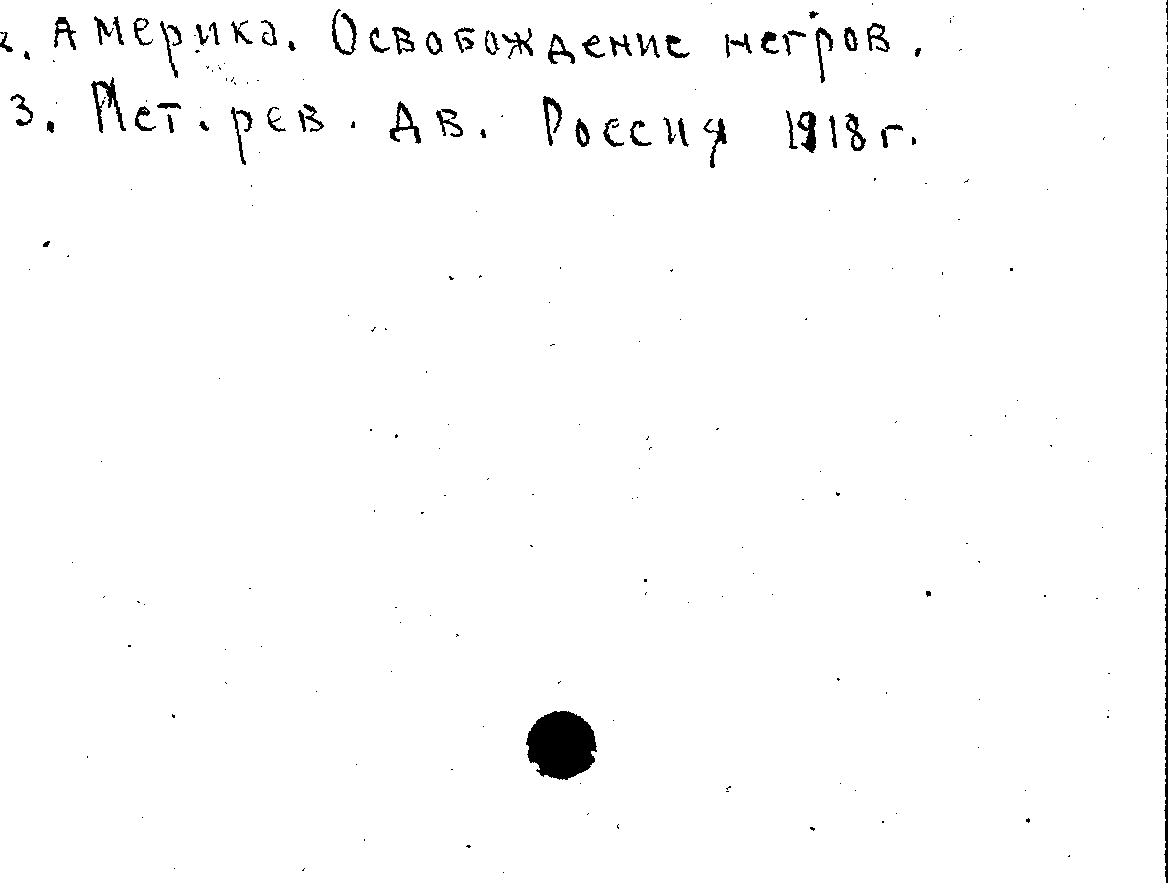 2. Америка. Освобождение негров.
3. Ист. рев. дв. Россия 1918 г.